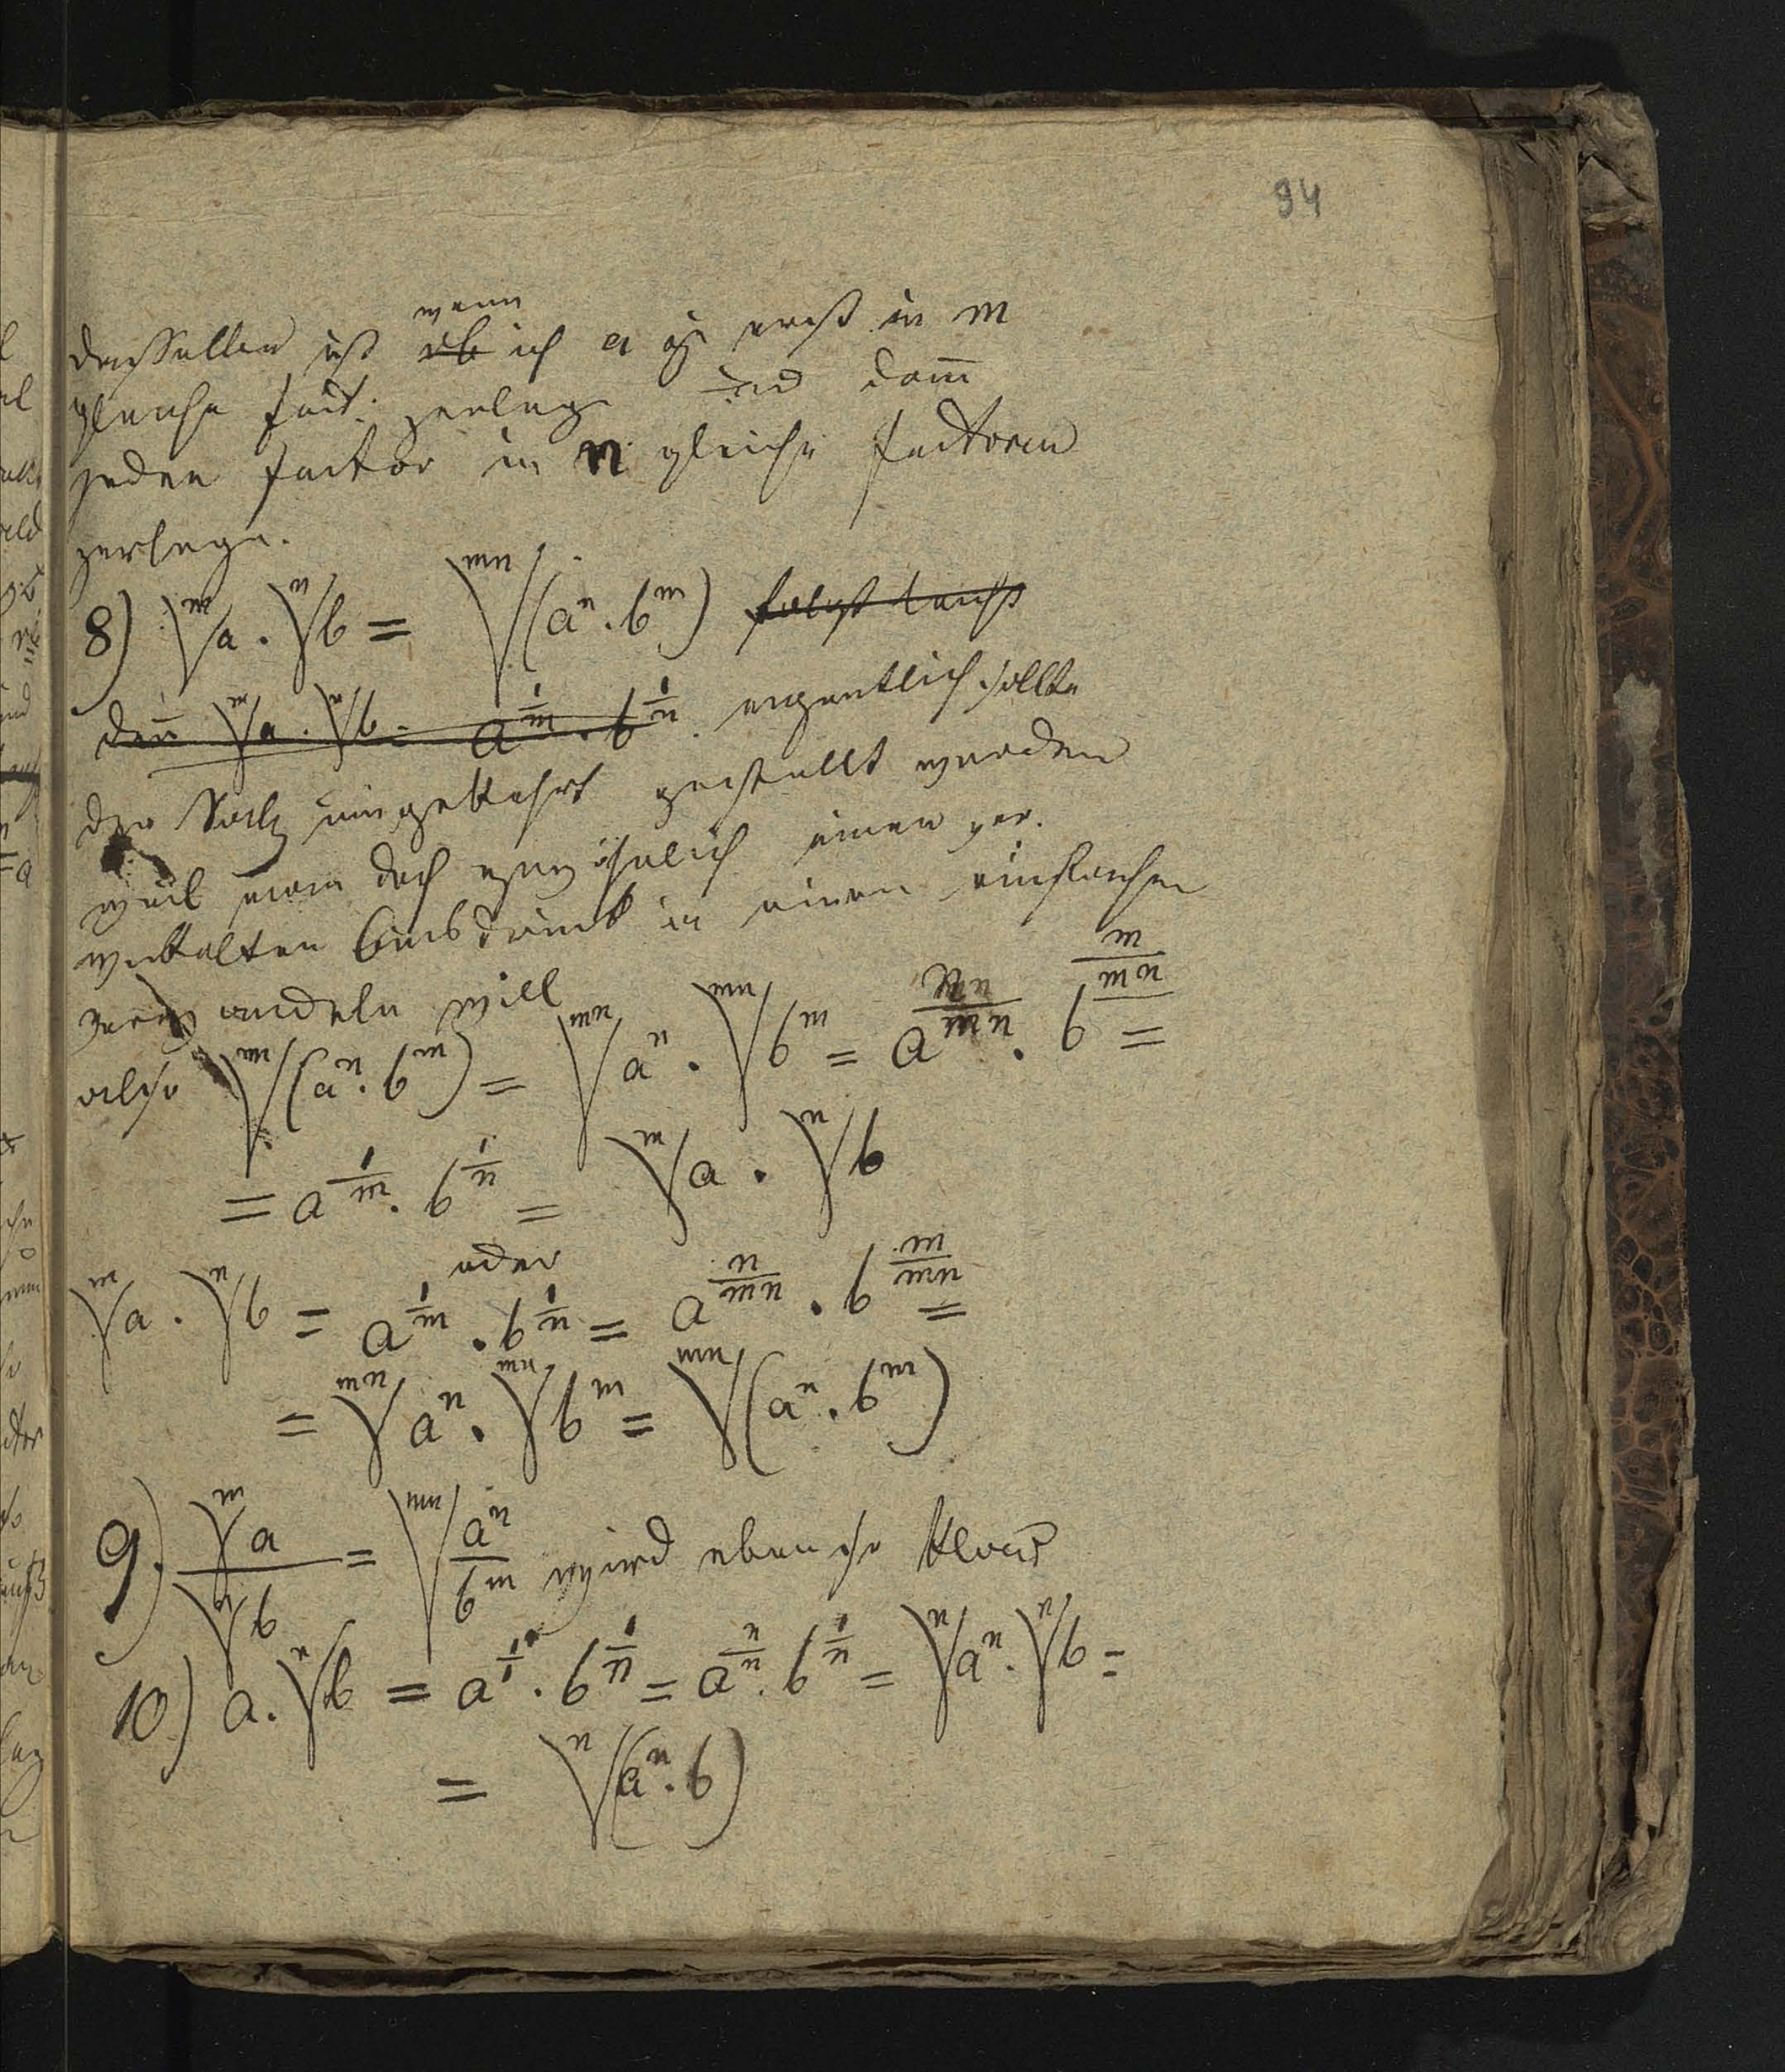 94
wenn
dasselbe ist ob ich a erst in m
gleiche fact: zerlege und dann
jeden factor in n gleiche factoren
zerlege.
8) ᵐ√a . ⁿ√b = ᵐⁿ√(aⁿ . bᵐ) folgt leicht
denn ᵐ√a . ⁿ√b = a^(1/m) . b^(1/n) eigentlich sollte
der Satz umgekehrt gestellt werden
weil man doch gewöhnlich einen ver-
wickelten Ausdruck in einen einfachen
verwandeln will
also ᵐⁿ√(aⁿ . bᵐ) = ᵐⁿ√aⁿ . ᵐⁿ√bᵐ = a^(n/mn) . b^(m/mn) =
= a^(1/m) . b^(1/n) = ᵐ√a . ⁿ√b
oder
ᵐ√a . ⁿ√b = a^(1/m) . b^(1/n) = a^(n/mn) . b^(m/mn) =
= ᵐⁿ√aⁿ . ᵐⁿ√bᵐ = ᵐⁿ√(aⁿ . bᵐ)
9) ᵐ√a / ⁿ√b = ᵐⁿ√(aⁿ / bᵐ) wird eben so klar
10) a . ⁿ√b = a^(1/1) . b^(1/n) = a^(n/n) . b^(1/n) = ⁿ√aⁿ . ⁿ√b =
= ⁿ√(aⁿ . b)